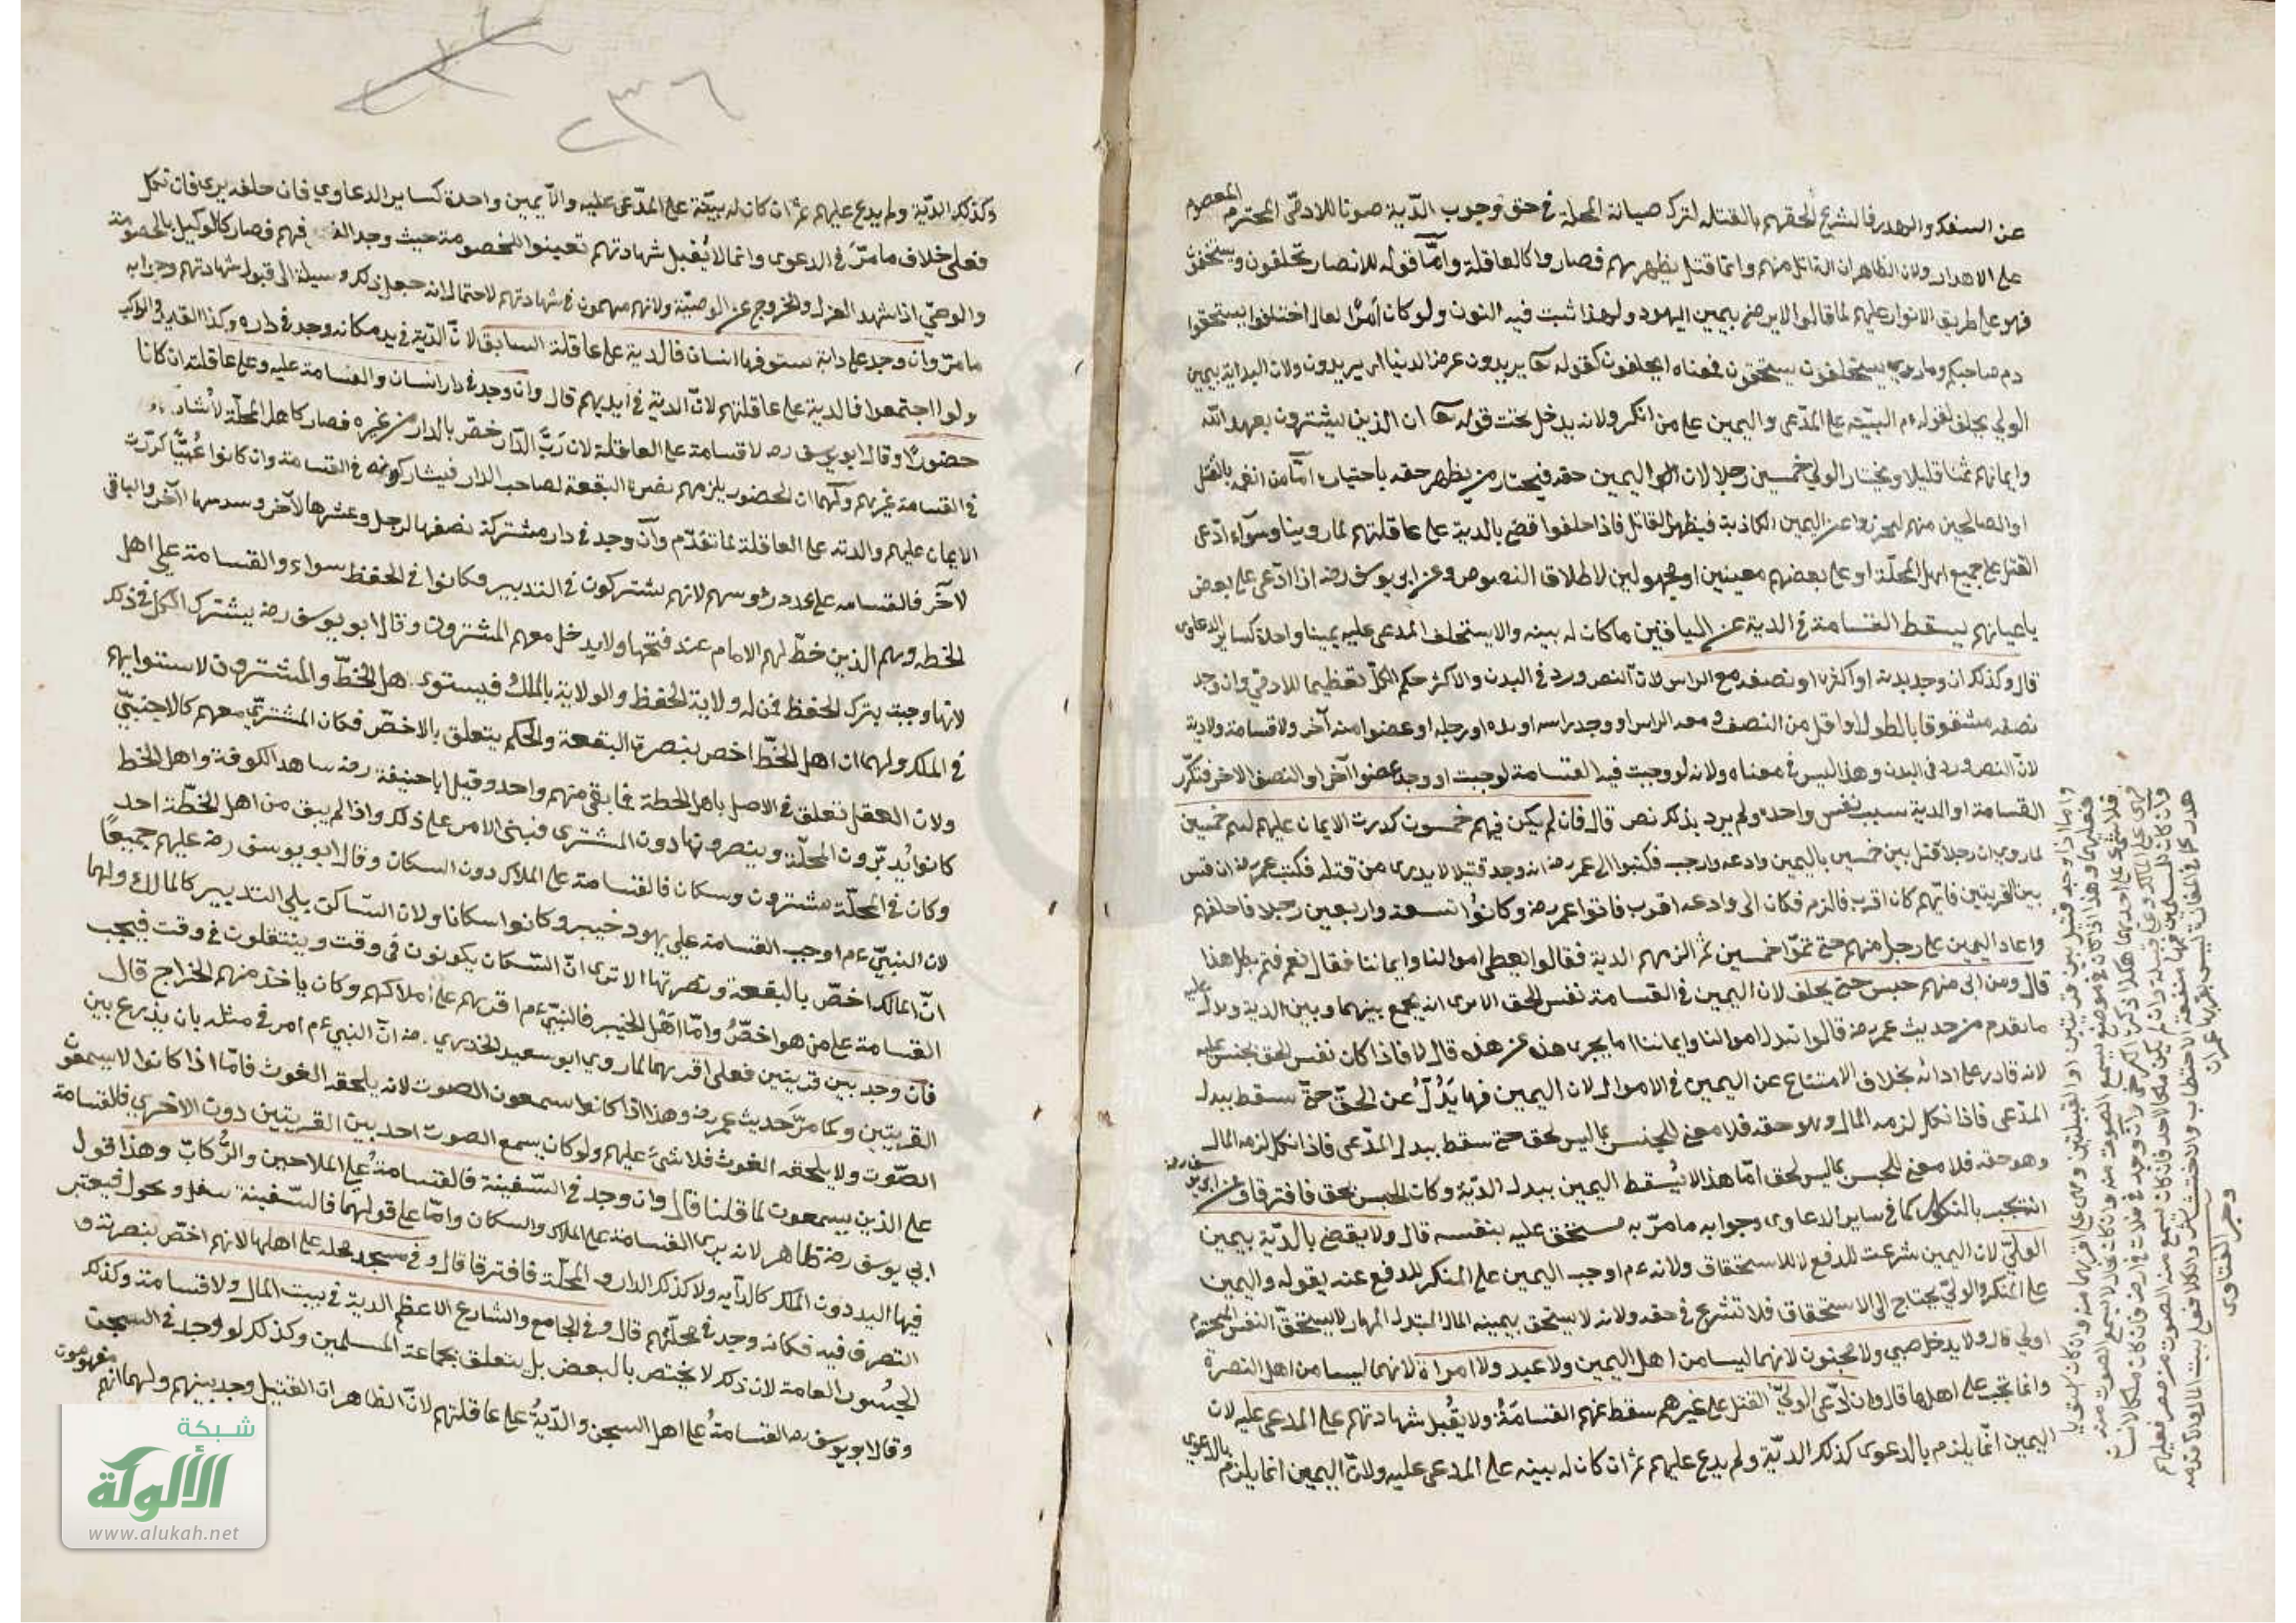 عن السفك والهدر فالشرع الحقهم بالقتلة لترك صيانة المحلة في حق وجوب الدية صونا للادمي المحترم المعصوم
على الاهدار ولان الظاهر ان القاتل منهم وانما قتل بظهرهم فصاروا كالعاقلة واما قوله للانصار تحلفون وتستحقون
فهو على طريق الانكار عليهم لما قالوا لا نرضى بيمين اليهود ولهذا ثبت فيه النون ولو كان امرا لقال احلفوا تستحقوا
دم صاحبكم وما روي يستحلفون يستحقون فمعناه ايحلفون كقوله تعا يريدون عرض الدنيا اي يريدون ولان البداية بيمين
الولي بخلف لقوله ءم البينة على المدعي واليمين على من انكر ولانه يدخل تحت قوله تعا ان الذين يشترون بعهد الله
وايمانهم ثمنا قليلا ويختار الولي خمسين رجلا لان اليمين حقه فيختار من يظهر حقه باختياره اما من اتهمه بالقتل
او الصالحين منهم ليحترزوا عن اليمين الكاذبة فيظهر القاتل فاذا حلفوا قضى بالدية على عاقلتهم لما روينا وسواء ادعى
القتل على جميع اهل المحلة او على بعضهم معينين او مجهولين لاطلاق النصوص وعن ابي يوسف رضه اذا ادعى على بعض
باعيانهم يسقط القسامة والدية عن الباقين فان كان له بينة والا يستحلف المدعى عليه يمينا واحدة كسائر الدعاوى
قال وكذلك ان وجد بدنه او اكثره او نصفه مع الراس لان النص ورد في البدن والاكثر حكم الكل تعظيما للادمي وان وجد
نصفه مشقوقا بالطول او اقل من النصف ومعه الراس او وجد راسه او يده او رجله او عضو منه آخر ولا قسامة ولا دية
لان النص ورد في البدن وهذا ليس في معناه ولانه لو وجبت فيه القسامة لوجبت لو وجد عضوا آخر او النصف الاخر فتكرر
القسامة او الدية بسبب نفس واحدة ولم يرد بذلك نص قال فان لم يكن فيهم خمسون كررت الايمان عليهم ليتم خمسين
لما روي ان رجلا قتل بين حيين باليمن وادعه وارحب فكتبوا الى عمر رضه انه وجد قتيلا لا يدرى من قتله فكتب عمر رضه ان قس
بين القريتين فايهم كان اقرب فالزم فكان الى وادعه اقرب فاتوا عمر رضه وكانوا تسعة واربعين رجلا فاحلفهم
واعاد اليمين على رجل منهم حتى تموا خمسين ثم الزمهم الدية فقالوا نعطي اموالنا وايماننا فقال نعم فبم يطل هذا
قال ومن ابى منهم حبس حتى يحلف لان اليمين في القسامة نفس الحق الا يرى انه يجمع بينهما وبين الدية ويدل عليه
ما تقدم من حديث عمر رضه قالوا نبذل اموالنا وايماننا اما يجزى هذه عن هذه قال لا فاذا كان نفس الحق يحبس عليه
لانه قادر على ادائه بخلاف الامتناع عن اليمين في الاموال لان اليمين فيها بدل عن الحق حتى سقط ببذل
المدعى فاذا نكل لزمه المال وهو حقه فلا معنى للحبس بما ليس بحق حتى سقط ببذل المدعى فاذا نكل لزمه المال
وهو حقه فلا معنى للحبس بما ليس بحق اما هذا لا يسقط اليمين ببذل الدية وكان الحبس بحق فافترقا وعن ابي يوسف رضه
انه تجب بالنكول كما في سائر الدعاوى وجوابه ما مر به مستحق عليه بنفسه قال ولا يقضى بالدية بيمين
الولي لان اليمين شرعت للدفع لا للاستحقاق ولانه ءم اوجب اليمين على المنكر للدفع عنه بقوله واليمين
على المنكر والولي يحتاج الى الاستحقاق فلا تشرع في حقه ولانه لا يستحق بيمينه المال المبتذل المهان لا يستحق النفس المحترم
اولى قال ولا يدخل صبي ولا مجنون لانهما ليسا من اهل اليمين ولا عبد ولا امراة لانهما ليسا من اهل النصرة
وانما تجب على اهلها قال وان ادعى الولي القتل على غيرهم سقط عنهم القسامة ولا يقبل شهادتهم على المدعى عليه لان
اليمين انما يلزم بالدعوى كذلك الدية ولم يدع عليهم ثم ان كان له بينة على المدعى عليه ولان اليمين انما يلزم بالدعوى
واما اذا وجد قتيل بين قريتين او القبيلتين
وجيز الفتاوى
٢٣٦
وكذلك الدية ولم يدع عليهم ثم ان كان له بينة على المدعى عليه والا يمين واحدة كسائر الدعاوي فان حلف برى فان نكل
فعلى خلاف ما مر في الدعوى وانما لا يقبل شهادتهم تعينوا للخصومة حيث وجد فيهم فصار كالوكيل بالخصومة
والوصي اذا شهد العزل والخروج عن الوصية ولانهم متهمون في شهادتهم لاحتمال انه جعل ذلك وسيلة الى قبول شهادتهم وجوابه
ما مر وان وجد على دابة يسوقها انسان فالدية على عاقلة السائق لان الدية في يده فكانه وجد في داره وكذا القائد والراكب
ولو اجتمعوا فالدية على عاقلتهم لان الدية في ايديهم قال وان وجد في دار انسان والقسامة عليه وعلى عاقلته ان كانا
حضورا وقال ابو يوسف ره لا قسامة على العاقلة لان رب الدار خص بالدار من غيره فصار كاهل المحلة لا يشاركهم
في القسامة غيرهم ولهما ان الحضور يلزمهم نصرة البقعة لصاحب الدار فيشاركونه في القسامة وان كانوا غيبا كررت
الايمان عليهم والدية على العاقلة لما تقدم وان وجد في دار مشتركة نصفها لرجل وعشرها لآخر وسدسها الآخر والباقي
لآخر فالقسامة على عدد رؤسهم لانهم يشتركون في التدبير وكانوا في الحفظ سواء والقسامة على اهل
الخطة وهم الذين خط لهم الامام عند فتحها ولا يدخل معهم المشترون وقال ابو يوسف رضه يشترك الكل في ذلك
لانها وجبت بترك الحفظ فمن له ولاية الحفظ والولاية بالملك فيستوى اهل الخط والمشترون لاستوائهم
في الملك ولهما ان اهل الخط اخص بنصرة البقعة والحكم يتعلق بالاخص فكان المشتري معهم كالاجنبي
ولان العقل تعلق في الاصل باهل الخطة فما بقي منهم واحد وقيل ابا حنيفة رضه شاهد الكوفة واهل الخط
كانوا يدبرون المحلة وينصرونها دون المشترى فبنى الامر على ذلك واذا لم يبق من اهل الخطة احد
وكان في المحلة مشترون وسكان فالقسامة على الملاك دون السكان وقال ابو يوسف رضه عليهم جميعا
لان النبي ءم اوجب القسامة على يهود خيبر وكانوا سكانا ولان الساكن يلي التدبير كالمالك ولهما
ان المالك اخص بالبقعة ونصرتها الا ترى ان السكان يكونون في وقت وينتقلون في وقت فيجب
القسامة على من هو اخص واما اهل الخيبر فالنبي ءم اقرهم على املاكهم وكان ياخذ منهم الخراج قال
فان وجد بين قريتين فعلى اقربهما لما روي ابو سعيد الخدري رضه ان النبي ءم امر في مثله بان يذرع بين
القريتين وكما مر حديث عمر رضه وهذا اذا كانوا يسمعون الصوت لانه يلحقه الغوث فاما اذا كانوا لا يسمعون
الصوت ولا يلحقه الغوث فلا شئ عليهم ولو كان يسمع الصوت احد بين القريتين دون الاخرى فلا قسامة
على الذين يسمعون لما قلنا قال وان وجد في السفينة فالقسامة على الملاحين والركاب وهذا قول
ابي يوسف رضه ظاهر لانه يرى القسامة على الملاك والسكان واما على قولهما فالسفينة تنقل وتحول فيعتبر
فيها اليد دون الملك كالدابه ولا كذلك الدار والمحلة فافترقا قال وفي مسجد محلة على اهلها لانهم اخص بنصرته و
التصرف فيه فكانه وجد في محلتهم قال وفي الجامع والشارع الاعظم الدية في بيت المال ولا قسامة وكذلك
الجسور العامة لان ذلك لا يختص بالبعض بل يتعلق بجماعة المسلمين وكذلك لو وجد في السجن
وقال ابو يوسف ره القسامة على اهل السجن والدية على عاقلتهم لان الظاهر ان القتيل وجد بينهم ولهما انهم مقهورون
شبكة
الألوكة
www.alukah.net